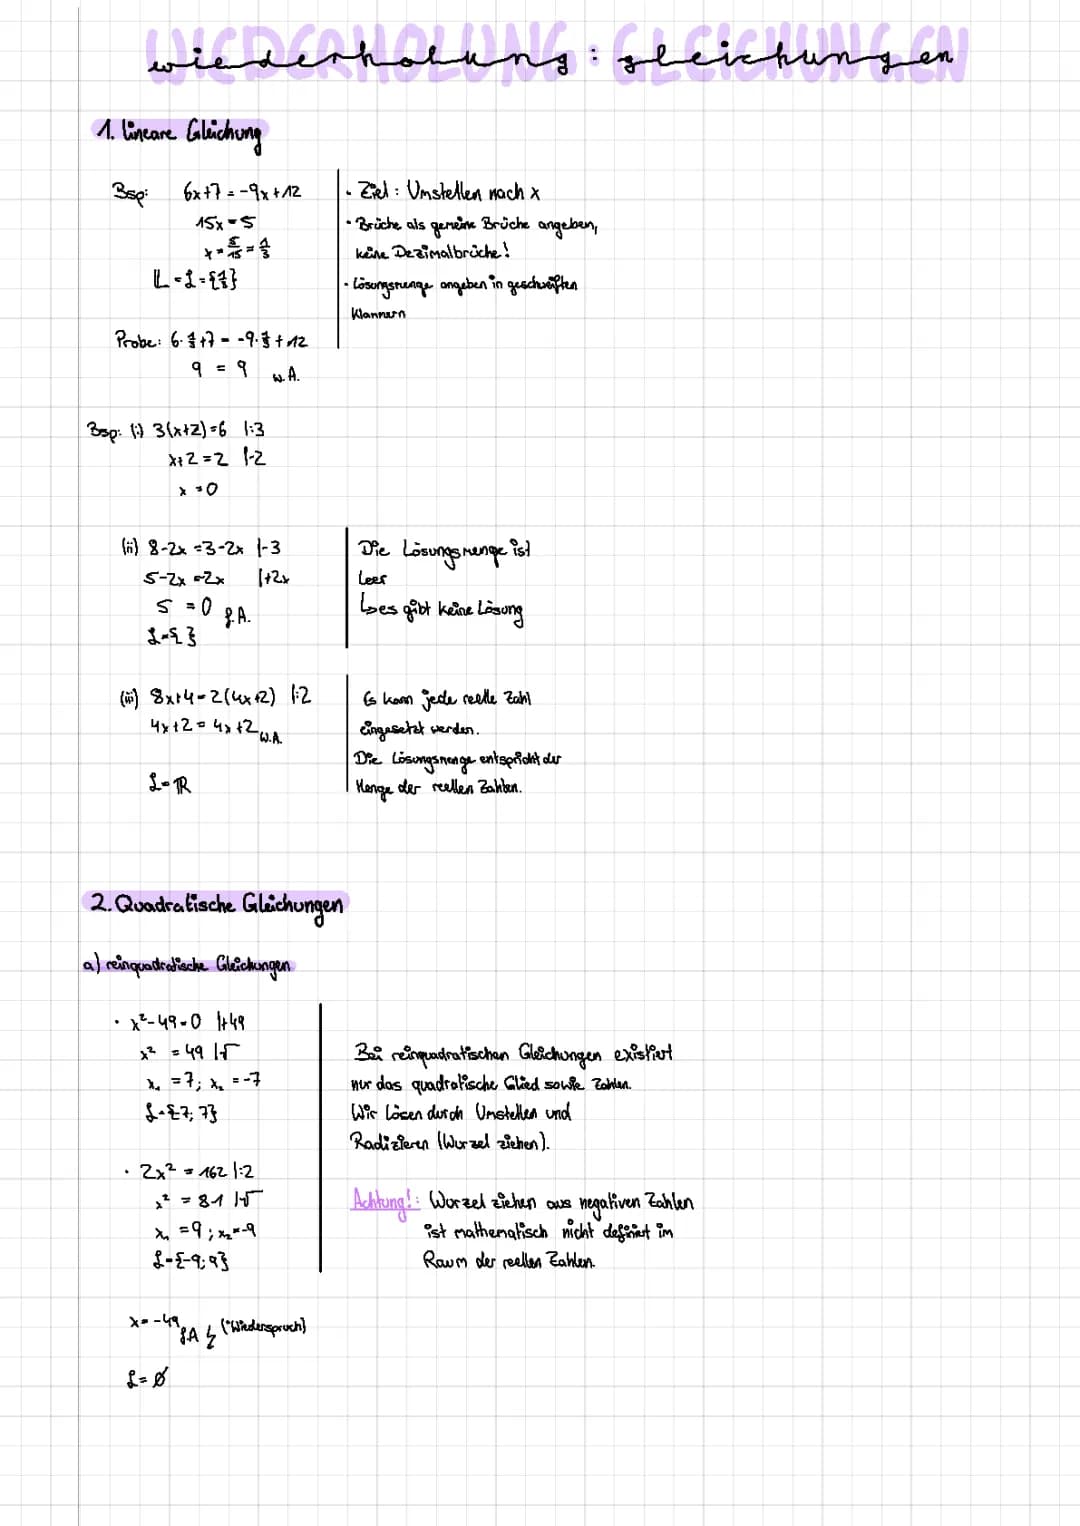 wiederholung: gleichungen
1. lineare Gleichung
Bsp: 6x+7 = -9x+12
15x = 5
x = 5/15 = 1/3
𝕃 = ℒ = {1/3}
Probe: 6·1/3+7 = -9·1/3+12
9 = 9 w.A.
· Ziel: Umstellen nach x
· Brüche als gemeine Brüche angeben,
keine Dezimalbrüche!
· Lösungsmenge angeben in geschweiften
Klammern
Bsp: (i) 3(x+2)=6 |:3
x+2=2 |-2
x=0
(ii) 8-2x=3-2x |-3
5-2x=-2x |+2x
5=0 f.A.
ℒ={ }
Die Lösungsmenge ist
leer
↳es gibt keine Lösung
(iii) 8x+4=2(4x+2) |:2
4x+2=4x+2 w.A.
ℒ=ℝ
Es kann jede reelle Zahl
eingesetzt werden.
Die Lösungsmenge entspricht der
Menge der reellen Zahlen.
2. Quadratische Gleichungen
a) reinquadratische Gleichungen
· x²-49=0 |+49
x² = 49 |√
x₁ = 7; x₂ = -7
ℒ={-7; 7}
· 2x² = 162 |:2
x² = 81 |√
x₁ = 9; x₂=-9
ℒ={-9; 9}
Bei reinquadratischen Gleichungen existiert
nur das quadratische Glied sowie Zahlen.
Wir lösen durch Umstellen und
Radizieren (Wurzel ziehen).
Achtung!: Wurzel ziehen aus negativen Zahlen
ist mathematisch nicht definiert im
Raum der reellen Zahlen.
x=-49 f.A ↯ (Wiederspruch)
ℒ=∅